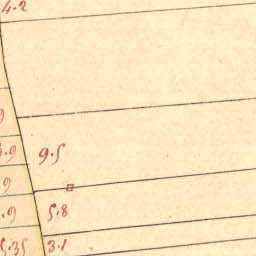 4.2
9
9.5
9
.9
5.8
5.35
3.1